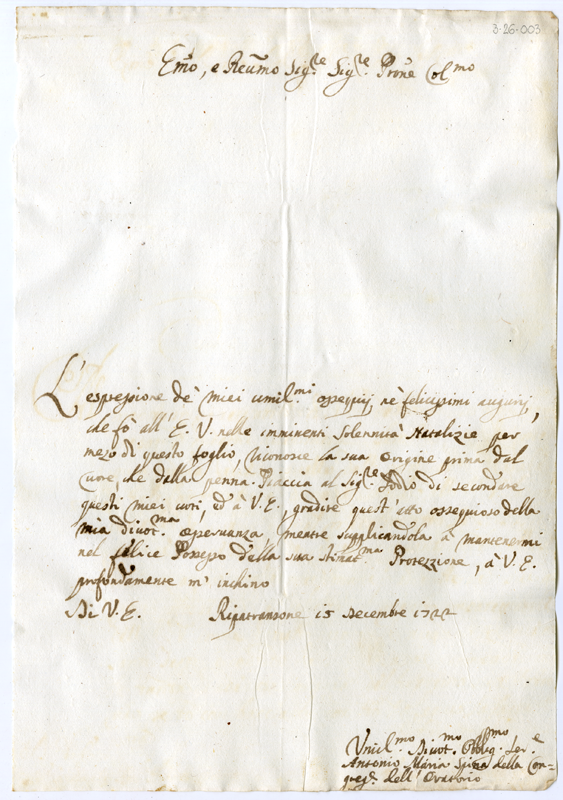 3-26-003
Emo, e Reumo Sig.re Sig.re Prone Col.mo
L'espressione de' miei umil.mi ossequij, ne' felicissimi augurij,
che fò all' E. V. nelle imminenti Solennità Natalizie per
mezo di questo foglio, riconosce la sua origine prima dal
cuore, che dalla penna. Piaccia al Sig.re Iddio di secondare
questi miei voti, ed à V. E., gradire quest' atto ossequioso della
mia divot.ma osservanza, mentre supplicandola à mantenermi
nel felice Possesso della sua stimat.ma Protezzione, à V. E.
profondamente m' inchino
Di V. E. Ripatransone 15 Decembre 1722
Umil.mo Divot.mo Obblig.mo Ser.e
Antonio Maria Spina della Con-
greg.e dell' Oratorio